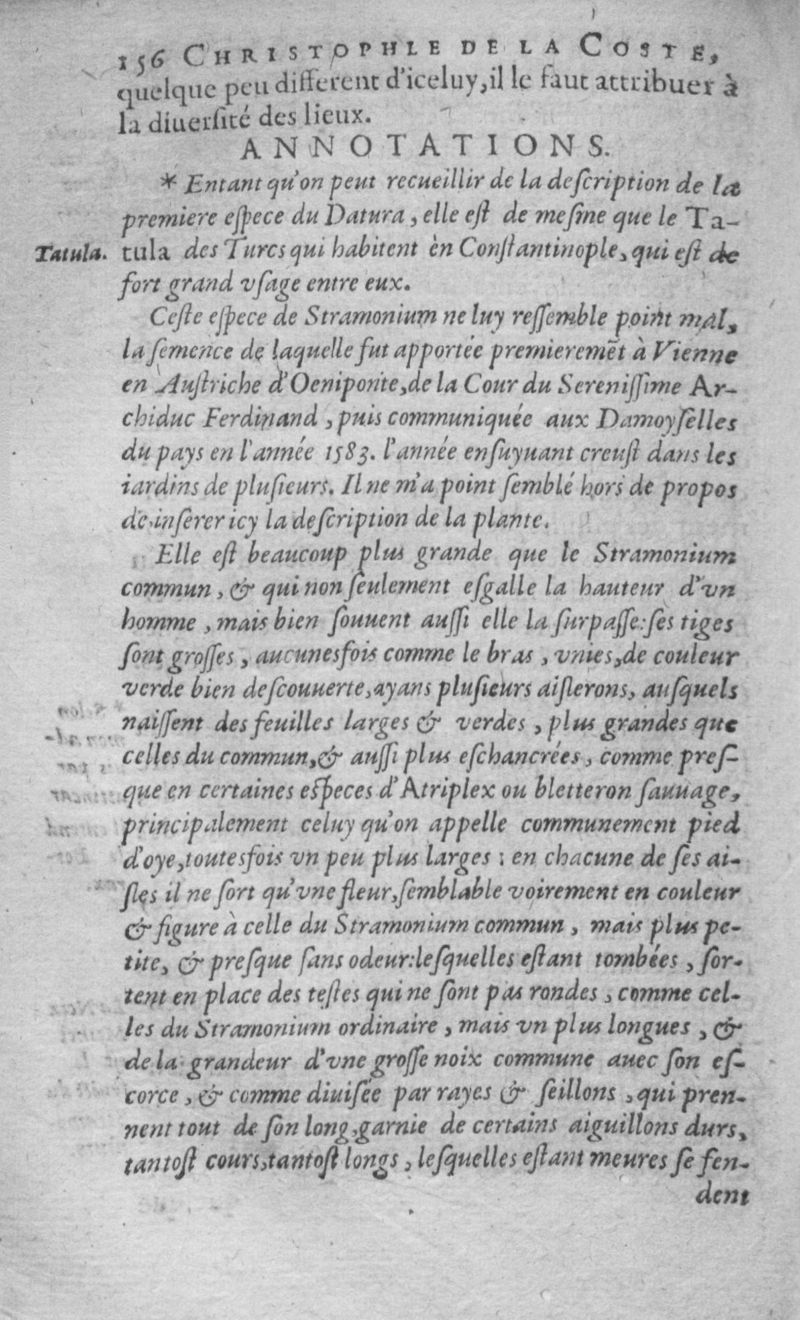 156 CHRISTOPHLE DE LA COSTE,
quelque peu different d'iceluy, il le faut attribuer à
la diuersité des lieux.
ANNOTATIONS.
* Entant qu'on peut recueillir de la description de la
premiere espece du Datura, elle est de mesme que le Ta-
Tatula. tula des Turcs qui habitent èn Constantinople, qui est de
fort grand vsage entre eux.
Ceste espece de Stramonium ne luy ressemble point mal,
la semence de laquelle fut apportée premieremẽt à Vienne
en Austriche d'Oeniponte, de la Cour du Serenissime Ar-
chiduc Ferdinand, puis communiquée aux Damoyselles
du pays en l'année 1583. l'année ensuyuant creust dans les
iardins de plusieurs. Il ne m'a point semblé hors de propos
de inserer icy la description de la plante.
Elle est beaucoup plus grande que le Stramonium
commun, & qui non seulement esgalle la hauteur d'vn
homme, mais bien souuent aussi elle la surpasse: ses tiges
sont grosses, aucunesfois comme le bras, vnies, de couleur
verde bien descouuerte, ayans plusieurs aislerons, ausquels
naissent des feuilles larges & verdes, plus grandes que
celles du commun, & aussi plus eschancrées, comme pres-
que en certaines especes d'Atriplex ou bletteron sauuage,
principalement celuy qu'on appelle communement pied
d'oye, toutesfois vn peu plus larges: en chacune de ses ai-
sles il ne sort qu'vne fleur, semblable voirement en couleur
& figure à celle du Stramonium commun, mais plus pe-
tite, & presque sans odeur: lesquelles estant tombées, sor-
tent en place des testes qui ne sont pas rondes, comme cel-
les du Stramonium ordinaire, mais vn plus longues, &
de la grandeur d'vne grosse noix commune auec son es-
corce, & comme diuisée par rayes & seillons, qui pren-
nent tout de son long, garnie de certains aiguillons durs,
tantost cours, tantost longs, lesquelles estant meures se fen-
dent